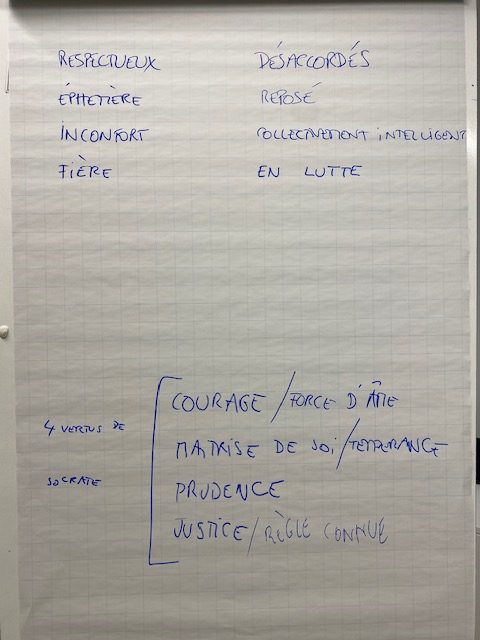 RESPECTUEUX DÉSACCORDÉS
ÉPHEMÈRE REPOSÉ
INCONFORT COLLECTIVEMENT INTELLIGENT
FIÈRE EN LUTTE
4 VERTUS DE SOCRATE
COURAGE / FORCE D'ÂME
MAITRISE DE SOI / TEMPERANCE
PRUDENCE
JUSTICE / RÈGLE CONNUE